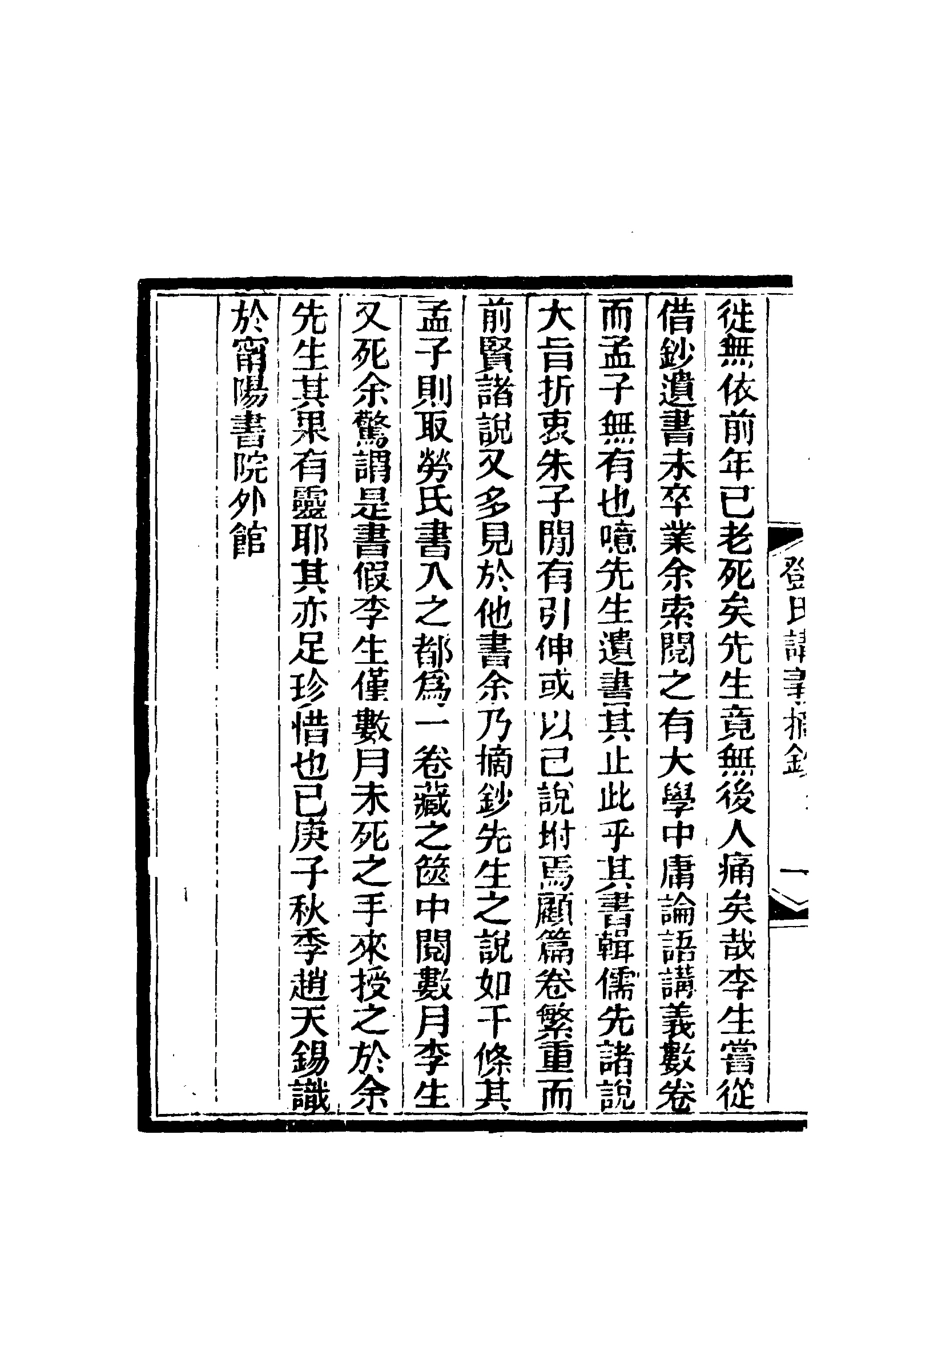 鄧氏講義摘鈔
一
徙無依前年已老死矣先生竟無後人痛矣哉李生嘗從
借鈔遺書未卒業余索閱之有大學中庸論語講義數卷
而孟子無有也噫先生遺書其止此乎其書輯儒先諸說
大旨折衷朱子閒有引伸或以己說坿焉顧篇卷繁重而
前賢諸說又多見於他書余乃摘鈔先生之說如干條其
孟子則取勞氏書入之都爲一卷藏之篋中閱數月李生
又死余驚謂是書假李生僅數月未死之手來授之於余
先生其果有靈耶其亦足珍惜也已庚子秋季趙天錫識
於甯陽書院外館